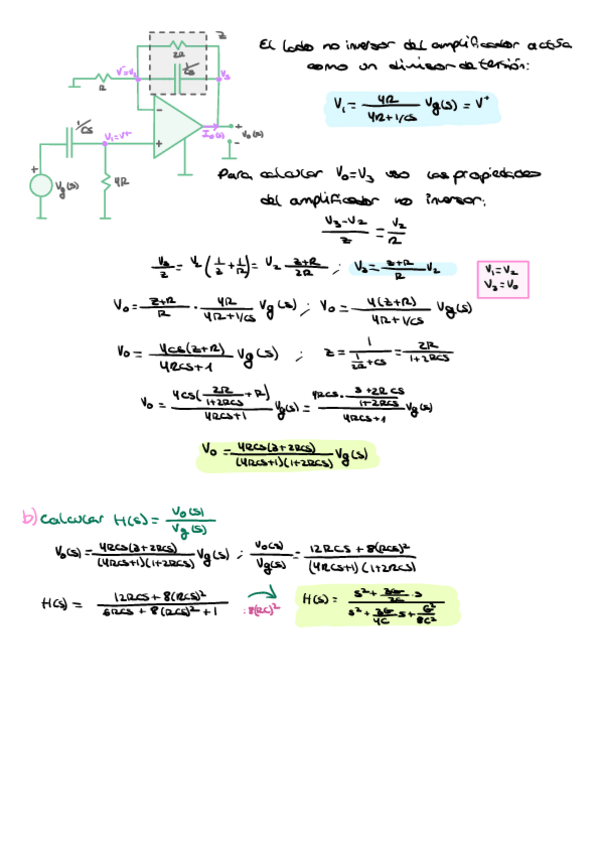 El lado no inversor del amplificador actúa
como un divisor de tensión:
z
2R
1/cs
V⁻=V₂
V₃
R
1/cs
V₁=V⁺
I₀(s)
V₀(s)
Vg(s)
4R
V₁ = 4R / (4R+1/cs) Vg(s) = V⁺
Para calcular V₀=V₃ uso las propiedades
del amplificador no inversor:
(V₃-V₂)/z = V₂/R
V₃/z = V₂ (1/z + 1/R) = V₂ (z+R)/(zR) ; V₃ = (z+R)/R V₂
V₁=V₂
V₃=V₀
V₀ = (z+R)/R · 4R/(4R+1/cs) Vg(s) ; V₀ = 4(z+R)/(4R+1/cs) Vg(s)
V₀ = 4cs(z+R)/(4Rcs+1) Vg(s) ; z = 1/(1/2R + cs) = 2R/(1+2Rcs)
V₀ = 4cs(2R/(1+2Rcs) + R)/(4Rcs+1) Vg(s) = 4Rcs · (3+2Rcs)/(1+2Rcs)/(4Rcs+1) Vg(s)
V₀ = 4Rcs(3+2Rcs)/((4Rcs+1)(1+2Rcs)) Vg(s)
b) Calcular H(s) = V₀(s)/Vg(s)
V₀(s) = 4Rcs(3+2Rcs)/((4Rcs+1)(1+2Rcs)) Vg(s) ; V₀(s)/Vg(s) = (12Rcs + 8(Rcs)²)/((4Rcs+1)(1+2Rcs))
H(s) = (12Rcs + 8(Rcs)²)/(6Rcs + 8(Rcs)² + 1) :8(RC)² H(s) = (s² + 3G/2C · s)/(s² + 3G/4C s + G²/8C²)